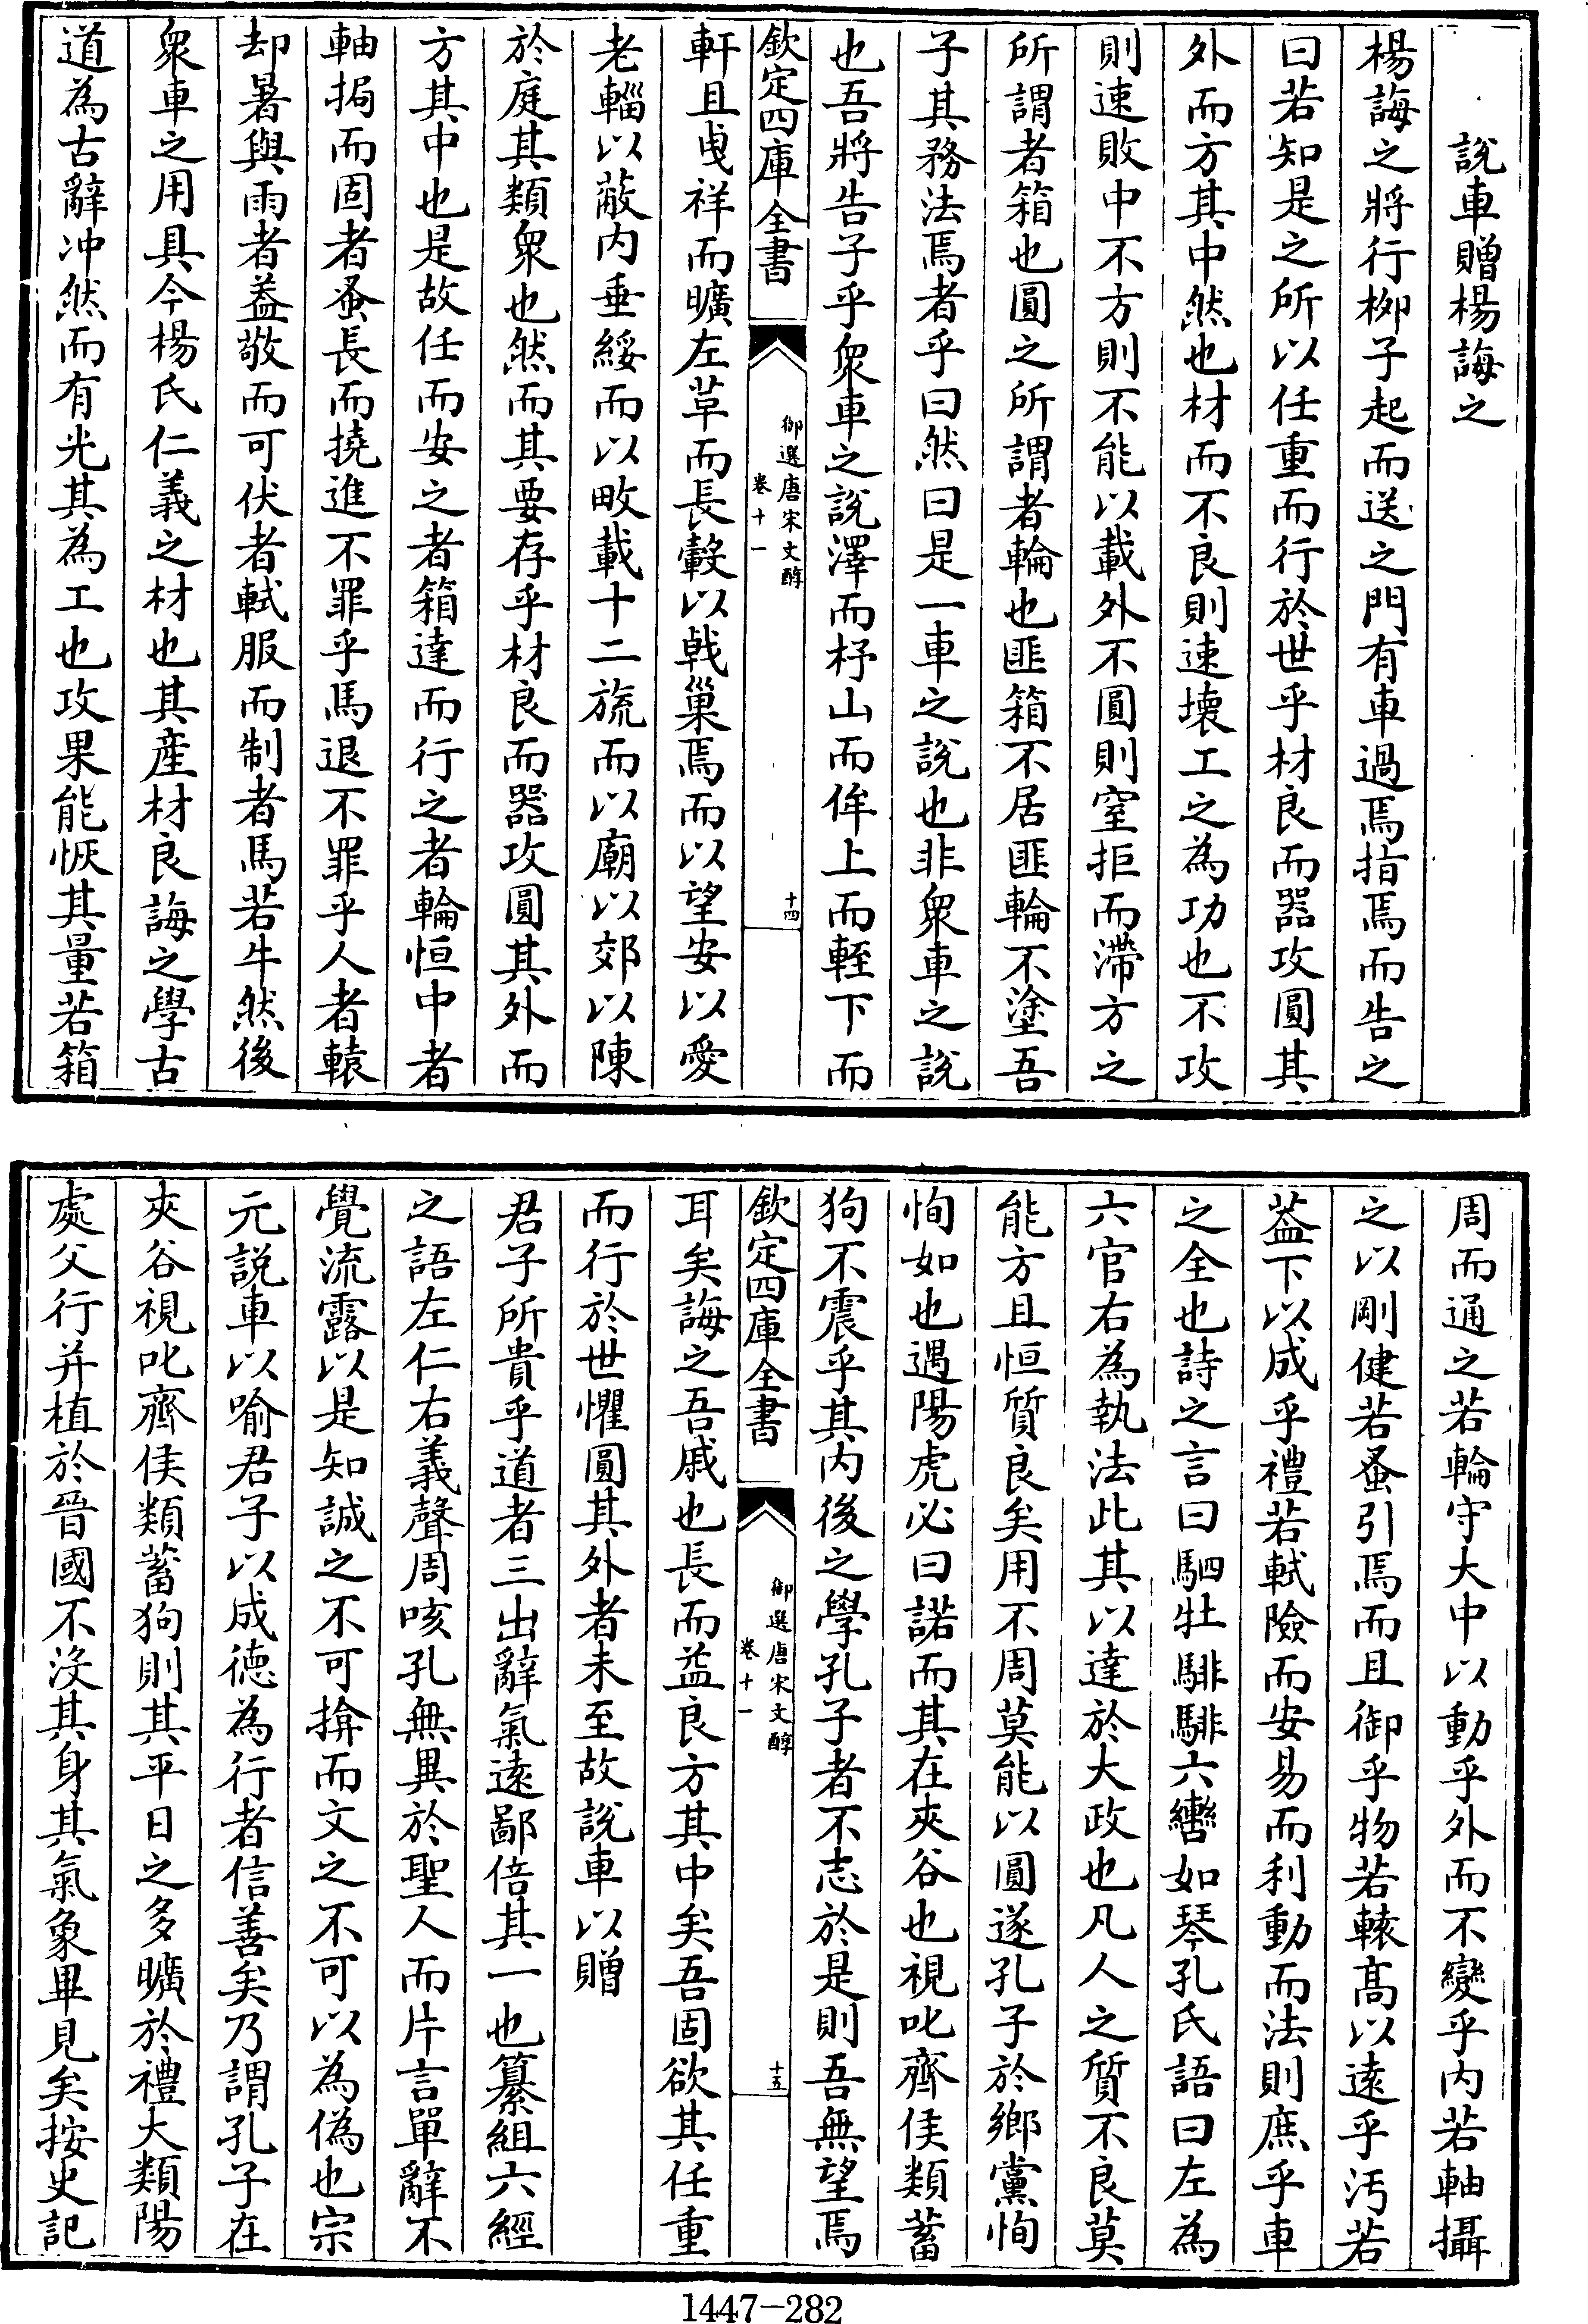 說車贈楊誨之
楊誨之將行柳子起而送之門有車過焉指焉而告之
曰若知是之所以任重而行於世乎材良而器攻圓其
外而方其中然也材而不良則速壞工之為功也不攻
則速敗中不方則不能以載外不圓則窒拒而滯方之
所謂者箱也圓之所謂者輪也匪箱不居匪輪不塗吾
子其務法焉者乎曰然曰是一車之說也非衆車之說
也吾將告子乎衆車之說澤而杼山而侔上而輊下而
欽定四庫全書
御選唐宋文醇
卷十一
十四
軒且曵祥而曠左革而長轂以戟巢焉而以望安以愛
老輜以蔽内垂綏而以畋載十二旒而以廟以郊以陳
於庭其類衆也然而其要存乎材良而器攻圓其外而
方其中也是故任而安之者箱達而行之者輪恒中者
軸挶而固者蚤長而撓進不罪乎馬退不罪乎人者轅
却暑與雨者蓋敬而可伏者軾服而制者馬若牛然後
衆車之用具今楊氏仁義之材也其産材良誨之學古
道為古辭冲然而有光其為工也攻果能恢其量若箱
周而通之若輪守大中以動乎外而不變乎内若軸攝
之以剛健若蚤引焉而且御乎物若轅髙以遠乎汚若
蓋下以成乎禮若軾險而安易而利動而法則庶乎車
之全也詩之言曰駟牡騑騑六轡如琴孔氏語曰左為
六官右為執法此其以達於大政也凡人之質不良莫
能方且恒質良矣用不周莫能以圓遂孔子於鄉黨恂
恂如也遇陽虎必曰諾而其在夾谷也視叱齊侯類蓄
狗不震乎其内後之學孔子者不志於是則吾無望焉
欽定四庫全書
御選唐宋文醇
卷十一
十五
耳矣誨之吾戚也長而益良方其中矣吾固欲其任重
而行於世懼圓其外者未至故說車以贈
君子所貴乎道者三出辭氣遠鄙倍其一也纂組六經
之語左仁右義聲周咳孔無異於聖人而片言單辭不
覺流露以是知誠之不可揜而文之不可以為偽也宗
元說車以喻君子以成徳為行者信善矣乃謂孔子在
夾谷視叱齊侯類蓄狗則其平日之多曠於禮大類陽
處父行并植於晉國不沒其身其氣象畢見矣按史記
1447-282